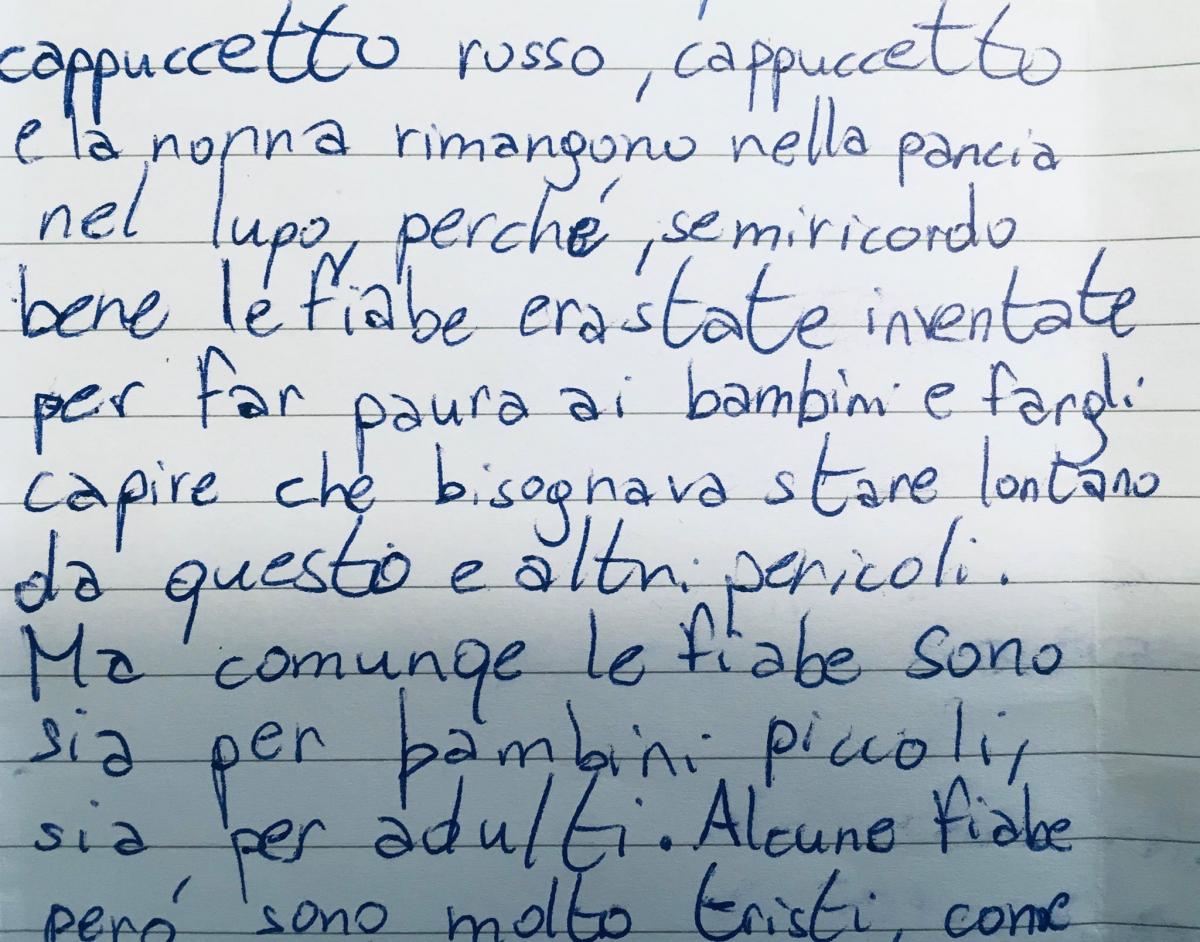 cappuccetto rosso, cappuccetto
e la nonna rimangono nella pancia
nel lupo, perché, se mi ricordo
bene le fiabe era state inventate
per far paura ai bambini e fargli
capire che bisognava stare lontano
da questo e altri pericoli.
Ma comunqe le fiabe sono
sia per bambini piccoli,
sia per adulti. Alcune fiabe
peró sono molto tristi, come